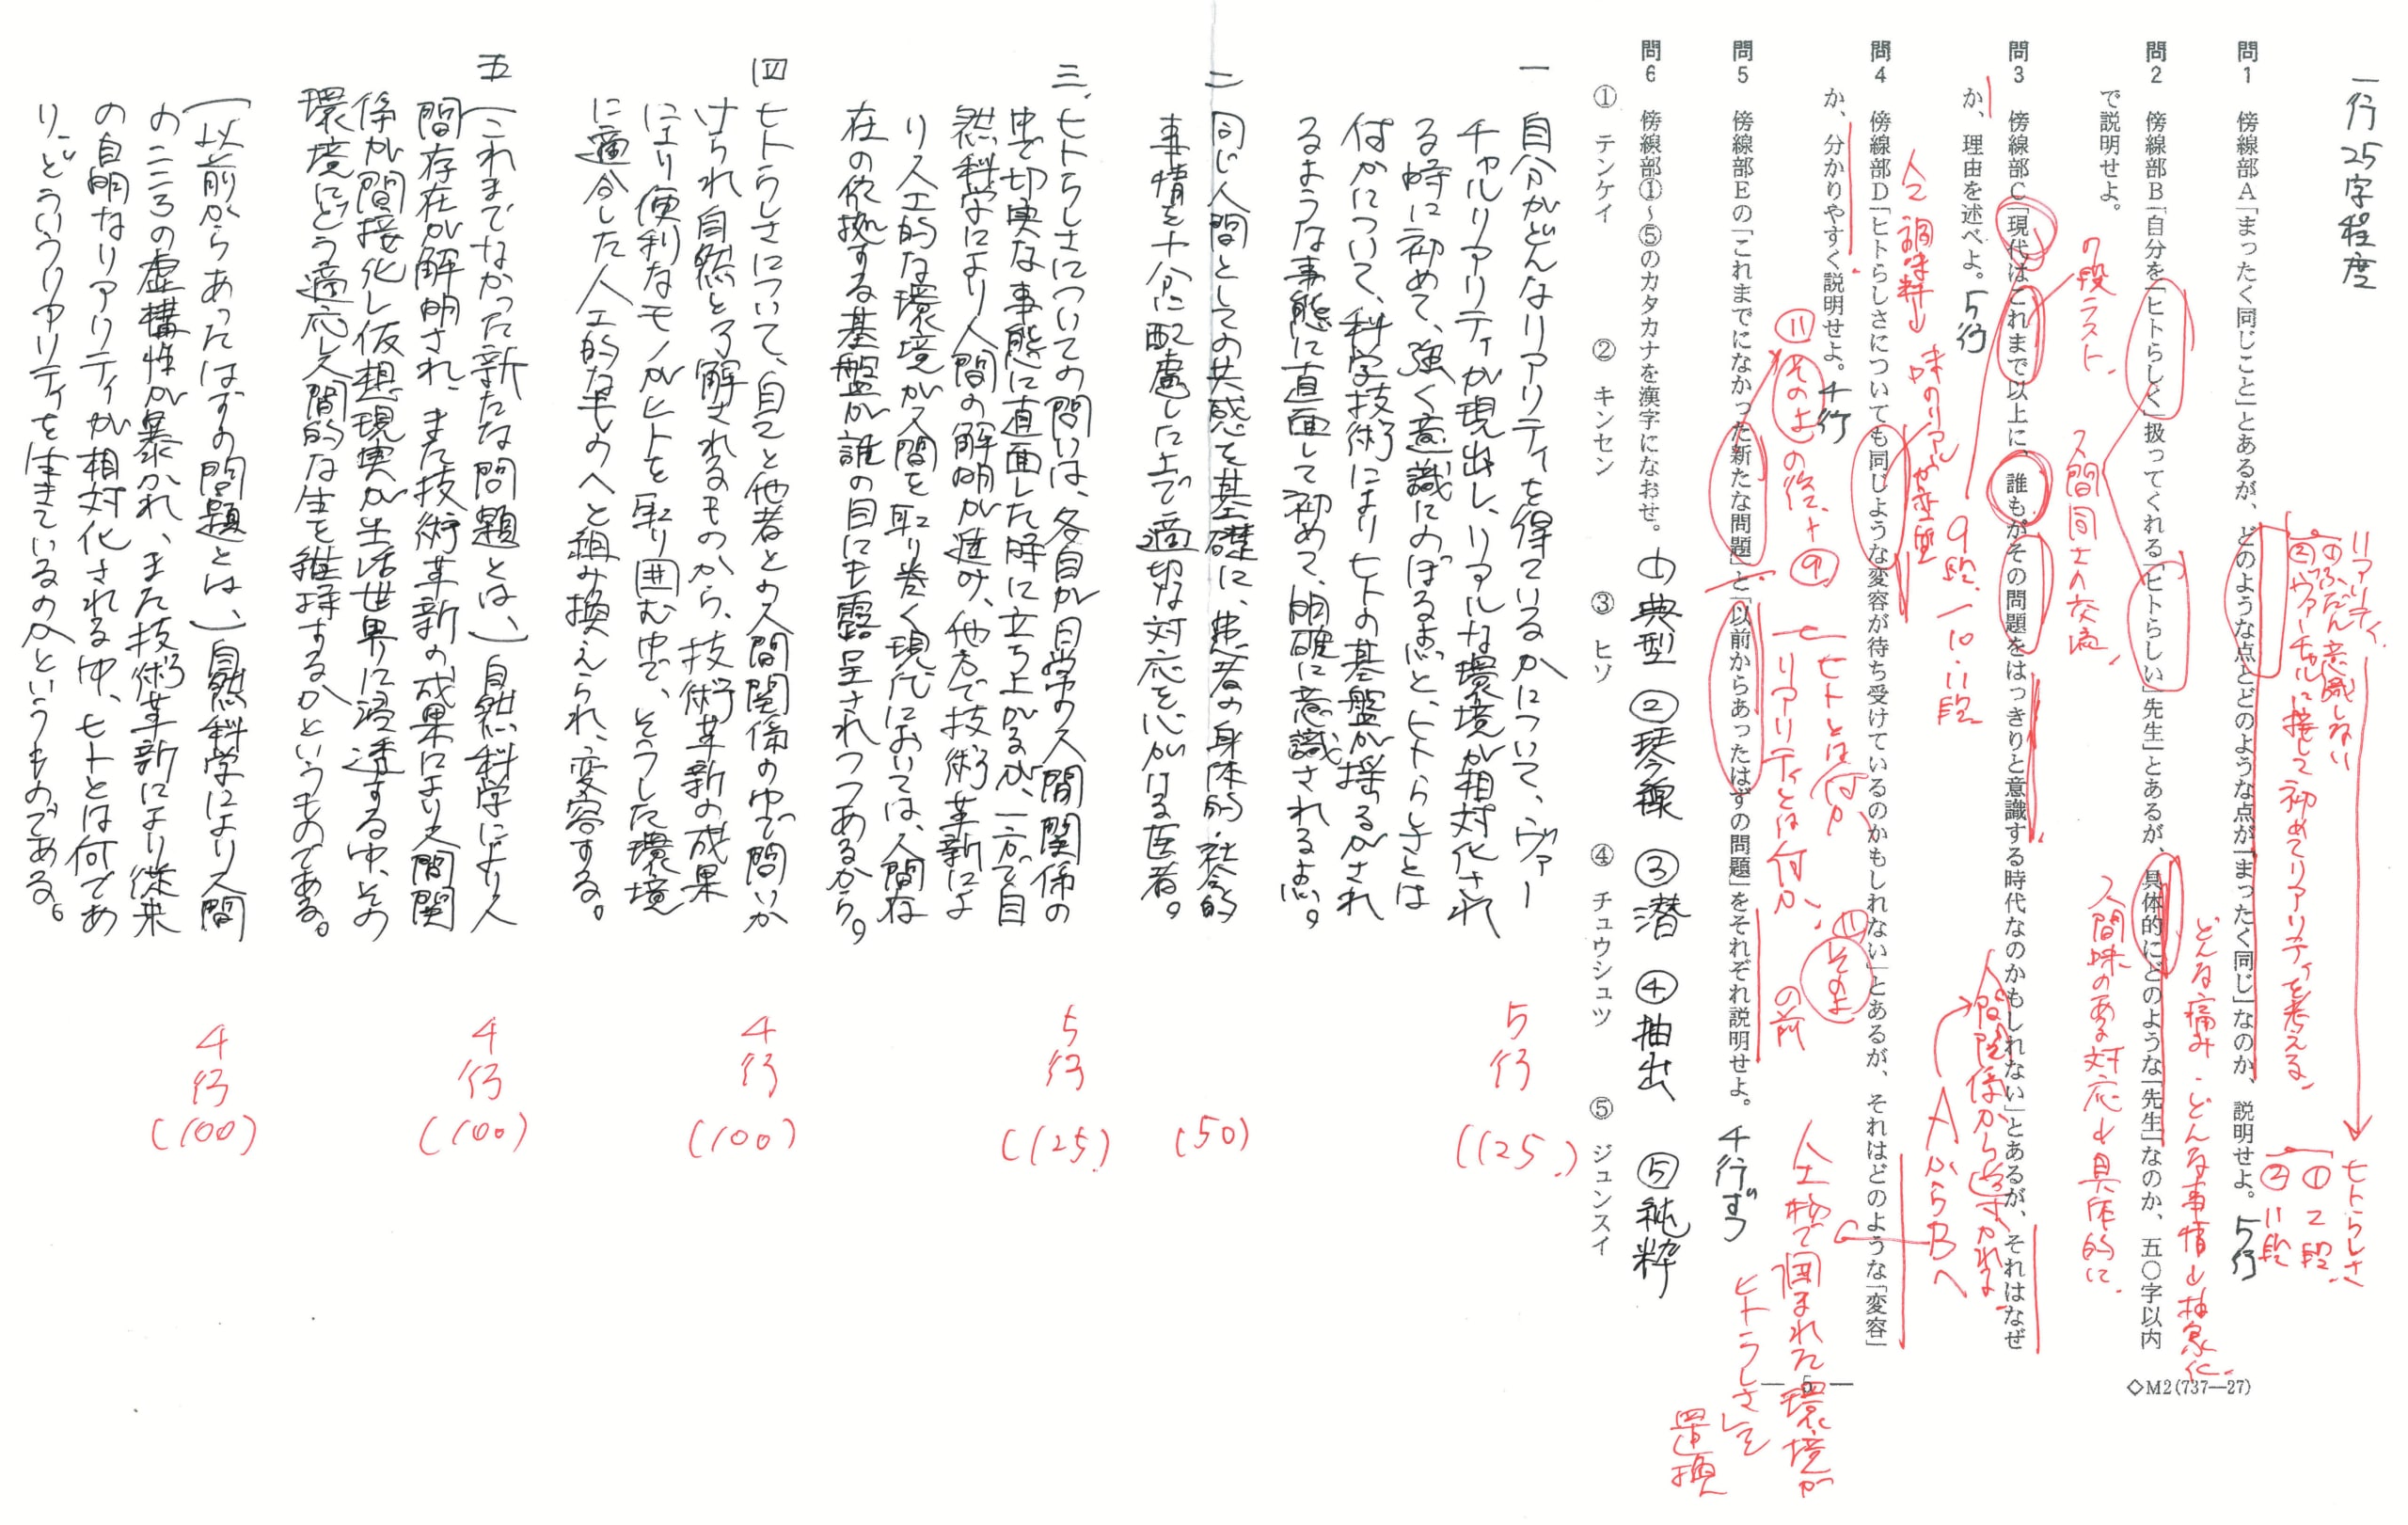 一行25字程度
問1 傍線部A「まったく同じこと」とあるが、どのような点とどのような点が「まったく同じ」なのか、説明せよ。 5行
リアリティ
①ふだん意識しない
②ヴァーチャルに接して初めてリアリティを考える
ヒトらしさ
① 2段
② 11段
問2 傍線部B「自分を「ヒトらしく」扱ってくれる「ヒトらしい」先生」とあるが、具体的にどのような「先生」なのか、五〇字以内
で説明せよ。
どんな痛み・どんな事情→抽象化
の段ラスト
人間同士の交流
人間味のある対応→具体的に
問3 傍線部C「現代はこれまで以上に、誰もがその問題をはっきりと意識する時代なのかもしれない」とあるが、それはなぜ
か、理由を述べよ。 5行
9段、10・11段
問4 傍線部D「ヒトらしさについても同じような変容が待ち受けているのかもしれない」とあるが、それはどのような「変容」
か、分かりやすく説明せよ。 4行
人工調味料→味のリアルが変容
AからBへ
⑪そのよの後、+⑨
ヒトとは何か
リアリティとは何か
⑪そのよの前
人工物で囲まれた環境が
ヒトらしさを
置換
問5 傍線部Eの「これまでになかった新たな問題」と「以前からあったはずの問題」をそれぞれ説明せよ。 4行ずつ
問6 傍線部①~⑤のカタカナを漢字になおせ。 ①典型 ②琴線 ③潜 ④抽出 ⑤純粋
① テンケイ ② キンセン ③ ヒソ ④ チュウシュツ ⑤ ジュンスイ
― 5 ―
◇M2(737―27)
一 自分がどんなリアリティを得ているかについて、ヴァー
チャルリアリティが現出し、リアルな環境が相対化され
る時に初めて、強く意識にのぼる点と、ヒトらしさとは
何かについて、科学技術によりヒトの基盤が揺るがされ
るような事態に直面して初めて、明確に意識される点。
5行
(125)
二 同じ人間としての共感を基礎に、患者の身体的・社会的
事情を十分に配慮した上で適切な対応を心がける医者。
(50)
三、ヒトらしさについての問いは、各自が日常の人間関係の
中で切実な事態に直面した時に立ち上がるが、一方で自
然科学により人間の解明が進み、他方で技術革新によ
り人工的な環境が人間を取り巻く現代においては、人間存
在の依拠する基盤が誰の目にも露呈されつつあるから。
5行
(125)
四 ヒトらしさについて、自己と他者との人間関係の中で問いか
けられ自然と了解されるものから、技術革新の成果
により便利なモノがヒトを取り囲む中で、そうした環境
に適合した人工的なものへと組み換えられ、変容する。
4行
(100)
五 (これまでなかった新たな問題とは、)自然科学により人
間存在が解明され、また技術革新の成果により人間関
係が間接化し仮想現実が生活世界に浸透する中、その
環境にどう適応し人間的な生を維持するかというものである。
4行
(100)
(以前からあったはずの問題とは、)自然科学により人間
のこころの虚構性が暴かれ、また技術革新により従来
の自明なリアリティが相対化される中、ヒトとは何であ
り、どういうリアリティを生きているのかというものである。
4行
(100)